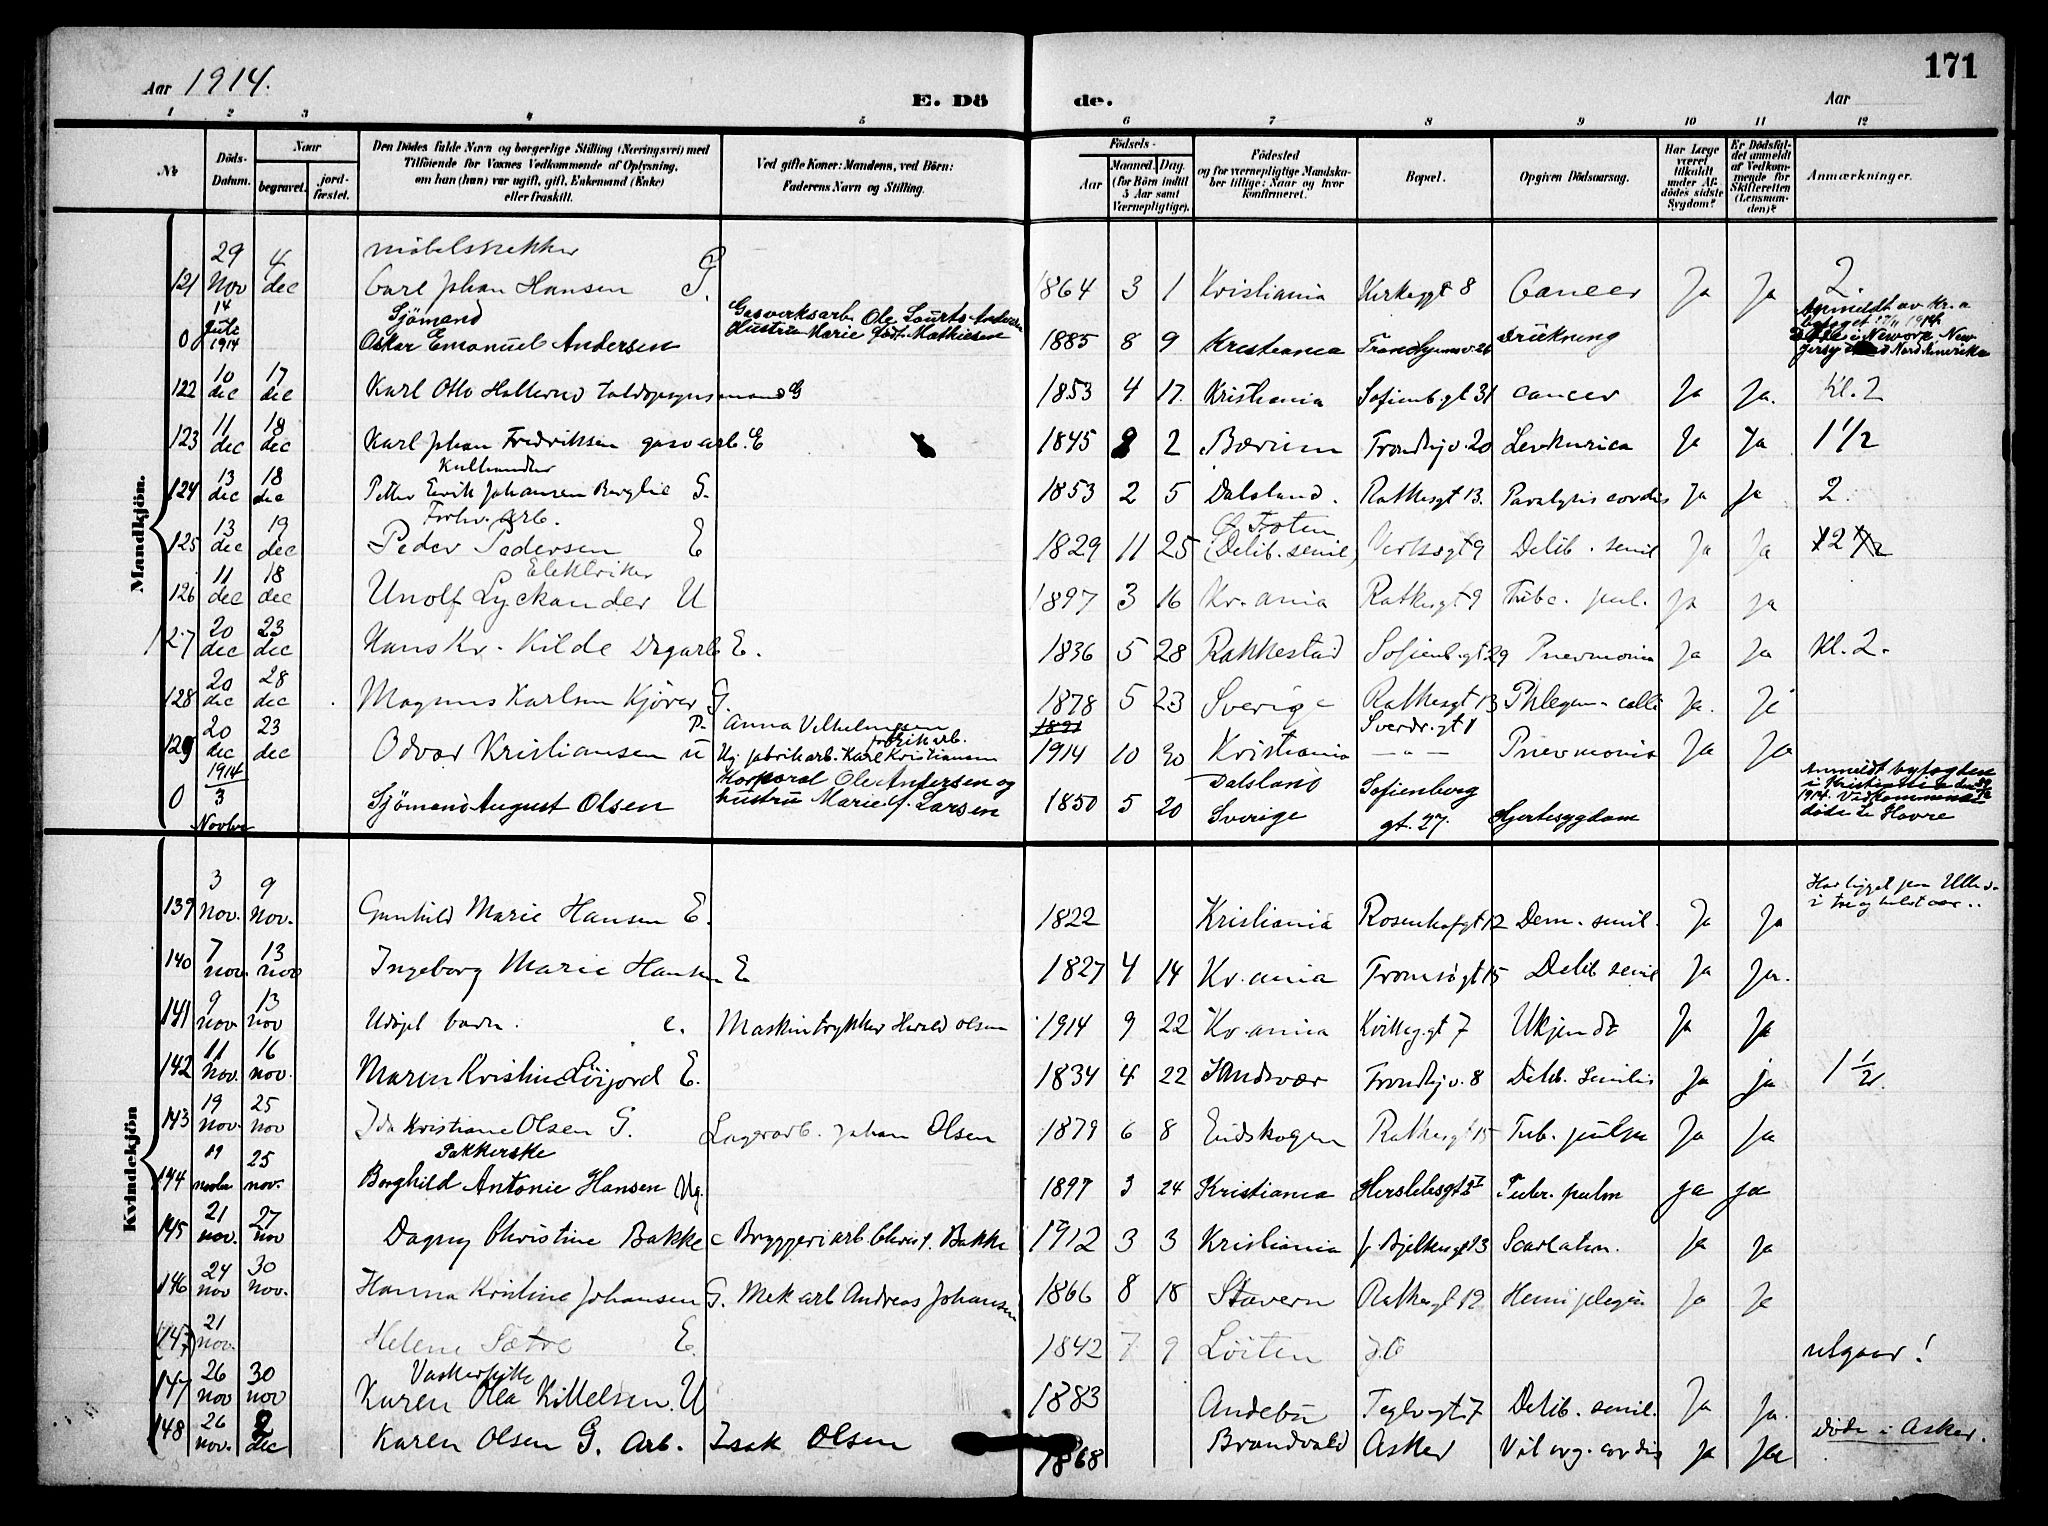 171
Aar 1914.
E. Dö de.
Aar
1 2 3 4 5 6 7 8 9 10 11 12
No
Döds-Datum.
Naar
begravet. jordfæstet.
Den Dödes fulde Navn og borgerlige Stilling (Næringsvei) med Tilföiende for Voxnes Vedkommende af Oplysning, om han (hun) var ugift, gift, Enkemand (Enke) eller fraskilt.
Ved gifte Koner: Mandens, ved Börn: Faderens Navn og Stilling.
Födsels-
Aar Maaned. Dag.
(for Börn indtil 5 Aar samt Værnepligtige).
Födested og for værnepligtige Mandskaber tillige: Naar og hvor konfirmeret.
Bopæl.
Opgiven Dödsaarsag.
Har Læge været tilkaldt under Afdödes sidste Sygdom?
Er Dödsfaldet anmeldt af Vedkommende for Skifteretten (Lensmanden)?
Anmærkninger.
Mandkjön.
121 29 Nov 4 dec Carl Johan Hansen G. 1864 3 1 Kristiania Kirkegt 8 Cancer Ja Ja 2.
0 14 Juli 1914 Sjömand Oskar Emanuel Andersen Gasverksarb. Ole Hustru Marie født Mathiesen 1885 8 9 Kristiania 26 Drukning Anmeldt av
122 10 dec 17 dec Karl Otto G 1853 4 17. Kristiania Sofienb.gt 31 cancer Ja Ja. Kl. 2
123 11 dec 18 dec Karl Johan Fredriksen gasv arb. E 1845 2 Bærum Trondhj v. 20 Ja Ja 1 1/2
124 13 dec 18 dec Kulhandler Petter Enrik Johansen Berglie G. 1853 2 5 Dalsland. Rathesgt 13. Paralysis cordis Ja Ja 2.
125 13 dec 19 dec Forhv. arb. Peder Pedersen E 1829 11 25 Ø Toten (Delib. senil) Verksgt 9 Delib. senil Ja Ja
126 11 dec 18 dec Elektriker Unolf Lyckander U 1897 3 16 Kr.ania Rathesgt 9 Tube. pul. Ja Ja
127 20 dec 23 dec Hans Kr. Kilde Dagarb E. 1836 5 28 Rakkestad Sofienb.gt. 29 Pnevmonia Ja Ja Kl. 2.
128 20 dec 28 dec Magnus Karlsen Kjörer G. 1878 5 23 Sverige Rathesgt 13 Phlegm. colli Ja. Ja
129 20 dec 23 dec Odvar Kristiansen u P. Anna Vilhelmsen fabrikarb. Ug. fabrikarb. Karl Kristiansen 1891 1914 10 30 Kristiania Sverdr.gt 1 — " — Pnevmonia Ja Ja
0 1914 3 Novbr Sjömand August Olsen Korporal Ole Andersen og hustru Marie f. Larsen 1850 5 20 Dalsland Sverige Sofienberg gt. 27. Hjertesygdom Anmeldt byfogden i Kristiania 1914. Vedkommende døde i Havre
Kvindekjön
139 3 nov. 9 nov. Gunhild Marie Hansen E. 1822 Kristiania Rosenhofgt 12 Dem. senil. Ja Ja Har ligget paa i tre og halvt aar..
140 7 nov. 13 nov Ingeborg Marie Hansen E 1827 4 14 Kr.ania Tromsögt 15 Delib senil Ja Ja.
141 9 nov. 13 nov Udöpt barn. e. Maskintrykker Harald Olsen 1914 9 22 Kr.ania 7 Ukjendt Ja Ja
142 11 nov. 16 nov. Maren Kristine E. 1834 4 22 Sandsvær Trondhj v. 8 Delib. senilis Ja ja 1 1/2.
143 19 nov. 25 nov Ida Kristiane Olsen G. Lagerarb. Johan Olsen 1879 6 8 Eidskogen Rathesgt 15 Tub. pulm Ja Ja
144 19 novbr 25 nov. Pakkerske Borghild Antonie Hansen Ug. 1897 3 24 Kristiania Herslebsgt Tuber. pulm ja ja
145 21 nov. 27 nov Dagny Christine Bakke e Bryggeriarb. Christ. Bakke 1912 3 3 Kristiania j. Bjelkesgt 3 Scarlatin. Ja Ja
146 24 nov 30 nov. Hanna Kristine Johansen G. Mek arb Andreas Johansen 1866 8 18 Stavern Rathesgt 12 Hemiplegia Ja Ja
(147) 21 nov. Helene Sætre E. 1842 7 9 Löiten utgaar!
147 26 nov 30 nov Vaskerpike Karen Olea Kittelsen. U 1883 Andebu Teglv.gt. 7 Delib. senil. Ja Ja.
148 26 nov. 2 dec Karen Olsen G. Arb. Isak Olsen 1868 Brandvold Asker Vit. org. cordis Ja Ja döde i Asker.